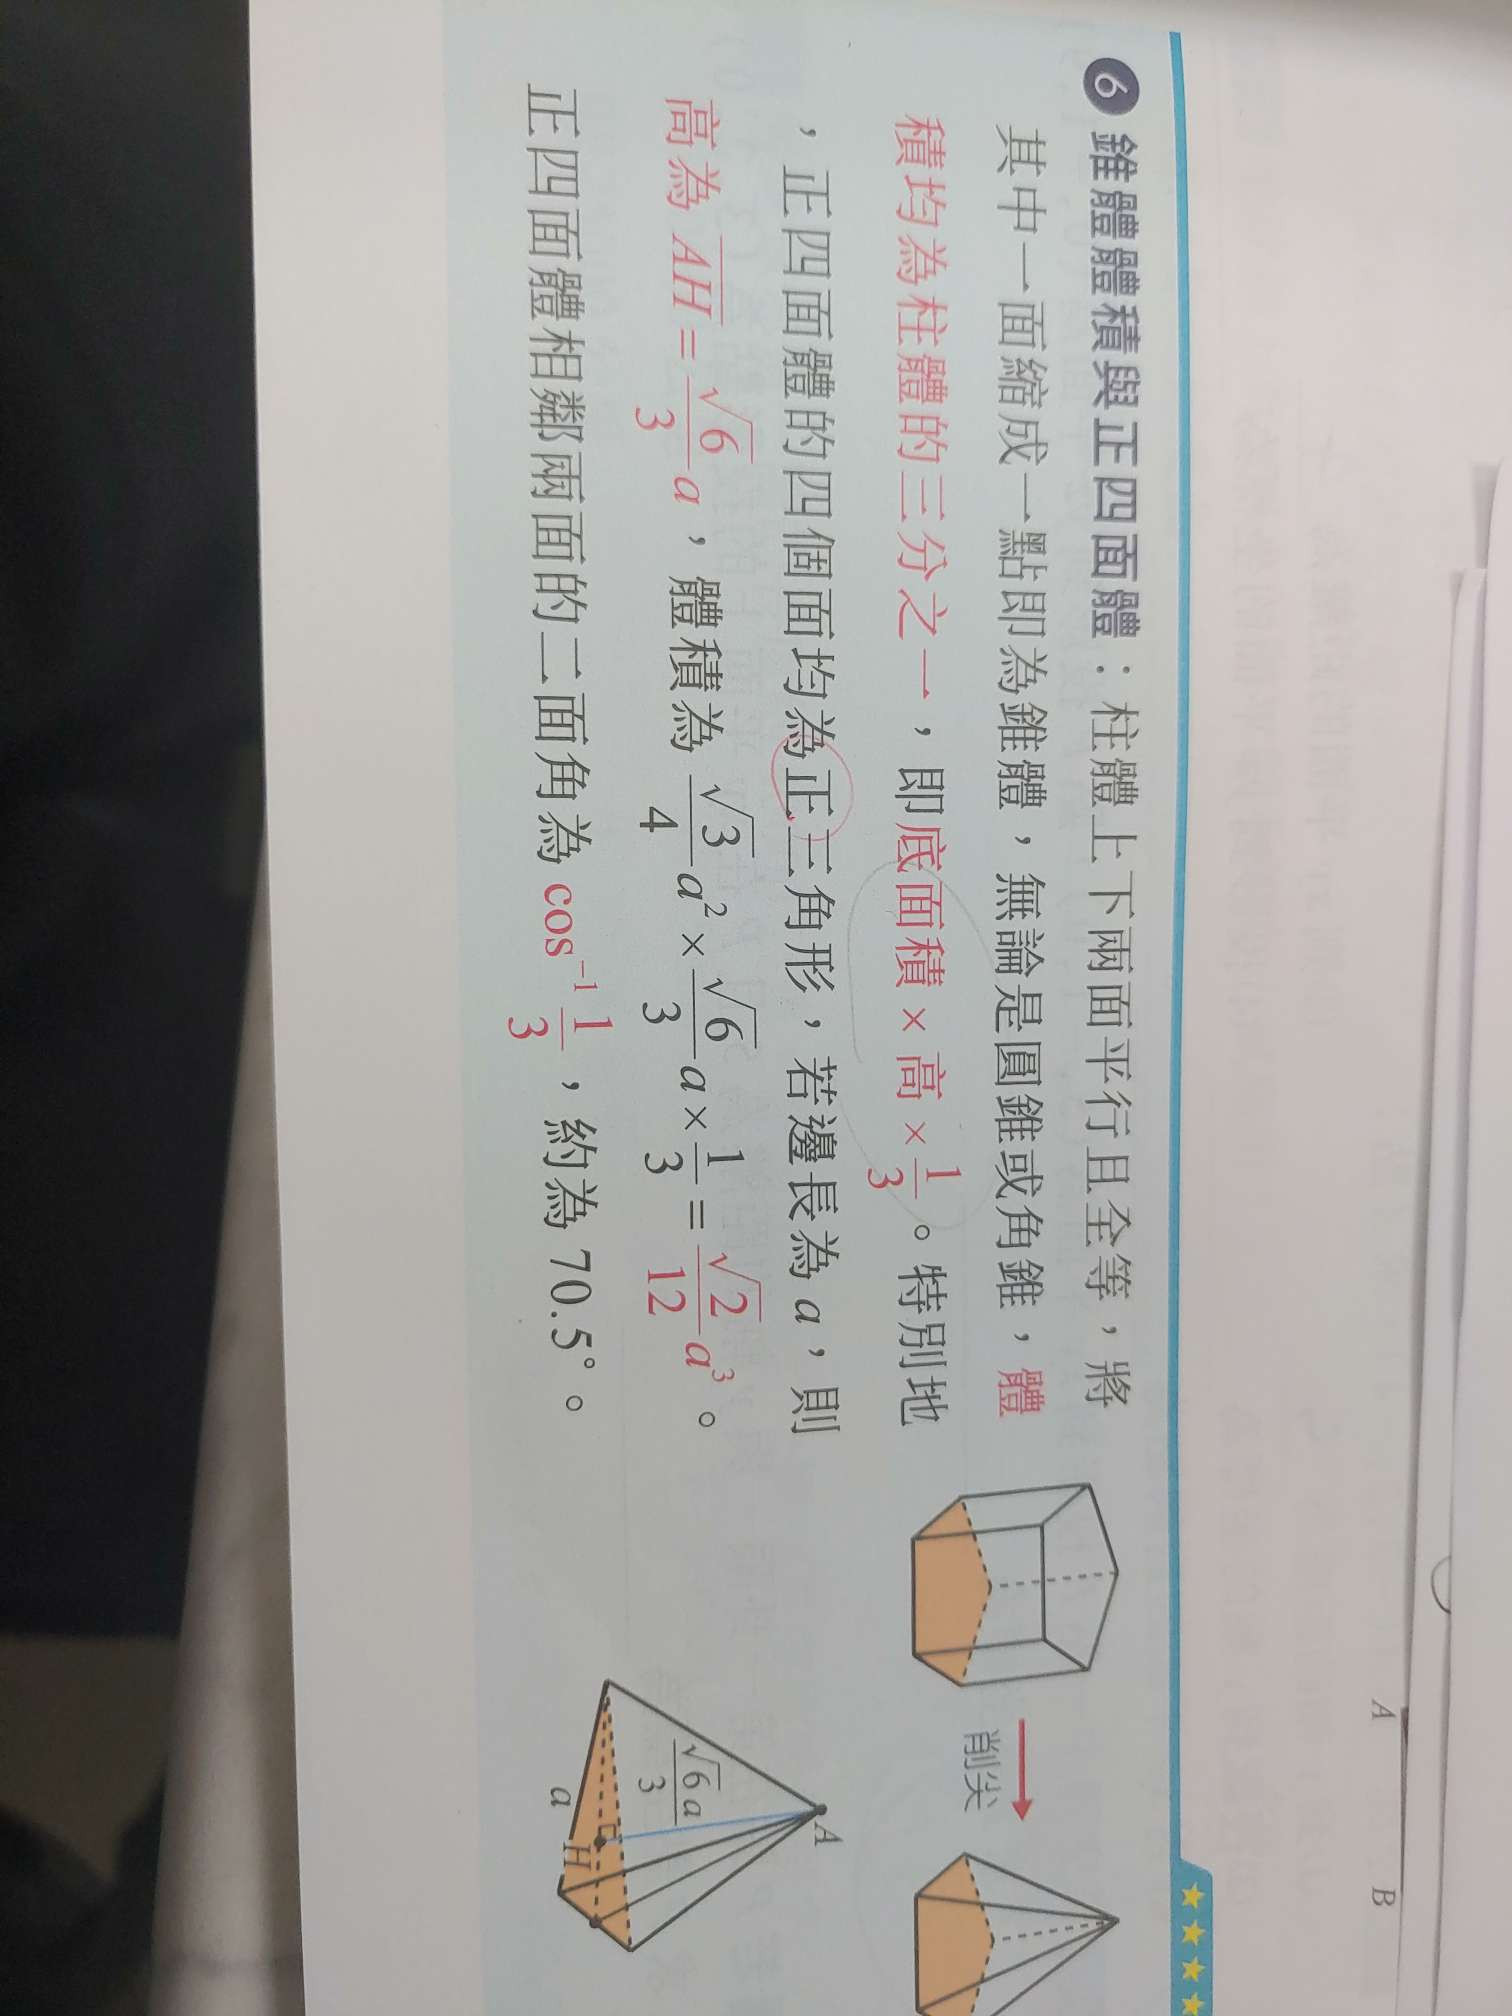 6 錐體體積與正四面體：柱體上下兩面平行且全等，將
其中一面縮成一點即為錐體，無論是圓錐或角錐，體
積均為柱體的三分之一，即底面積 × 高 × 1/3。特別地
，正四面體的四個面均為正三角形，若邊長為 a，則
高為 \overline{AH} = √6/3 a，體積為 √3/4 a² × √6/3 a × 1/3 = √2/12 a³。
正四面體相鄰兩面的二面角為 cos⁻¹ 1/3，約為 70.5°。
削尖
A
√6 a/3
H
a
A B